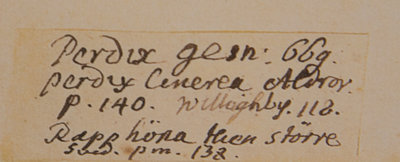 Perdix gesn: 669.
perdix Cinerea Aldrov
p. 140. Willoghby. 118.
Rapphöna then större
Sved. p.m. 138.